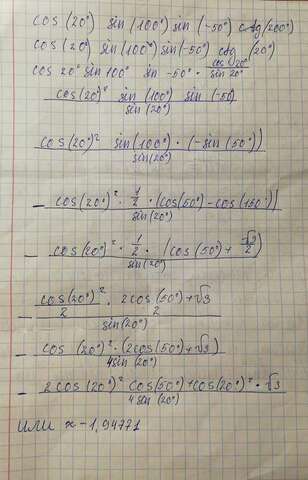 cos (20°) sin (100°) sin (-50°) ctg (200°)
cos (20°) sin (100°) sin (-50°) ctg (20°)
cos 20° sin 100° sin -50° · cos 20° / sin 20°
cos(20)² sin (100°) sin (-50) / sin (20°)
cos(20°)² sin(100°) · (-sin (50°)) / sin(20°)
- cos(20°)² · 1/2 · (cos(50°) - cos(150°)) / sin(20°)
- cos(20°)² · 1/2 · (cos(50°) + √3/2) / sin(20°)
- cos(20°)²/2 · 2cos(50°)+√3/2 / sin(20°)
- cos (20°)² · (2cos(50°)+√3) / 4sin (20°)
- 2cos (20°)² cos(50°)+cos(20°)² · √3 / 4 sin (20°)
или x -1,94771